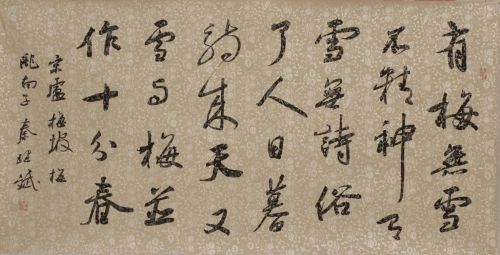 有梅無雪
不精神有
雪無詩俗
了人日暮
詩成天又
雪与梅並
作十分春
宋盧梅坡
秦